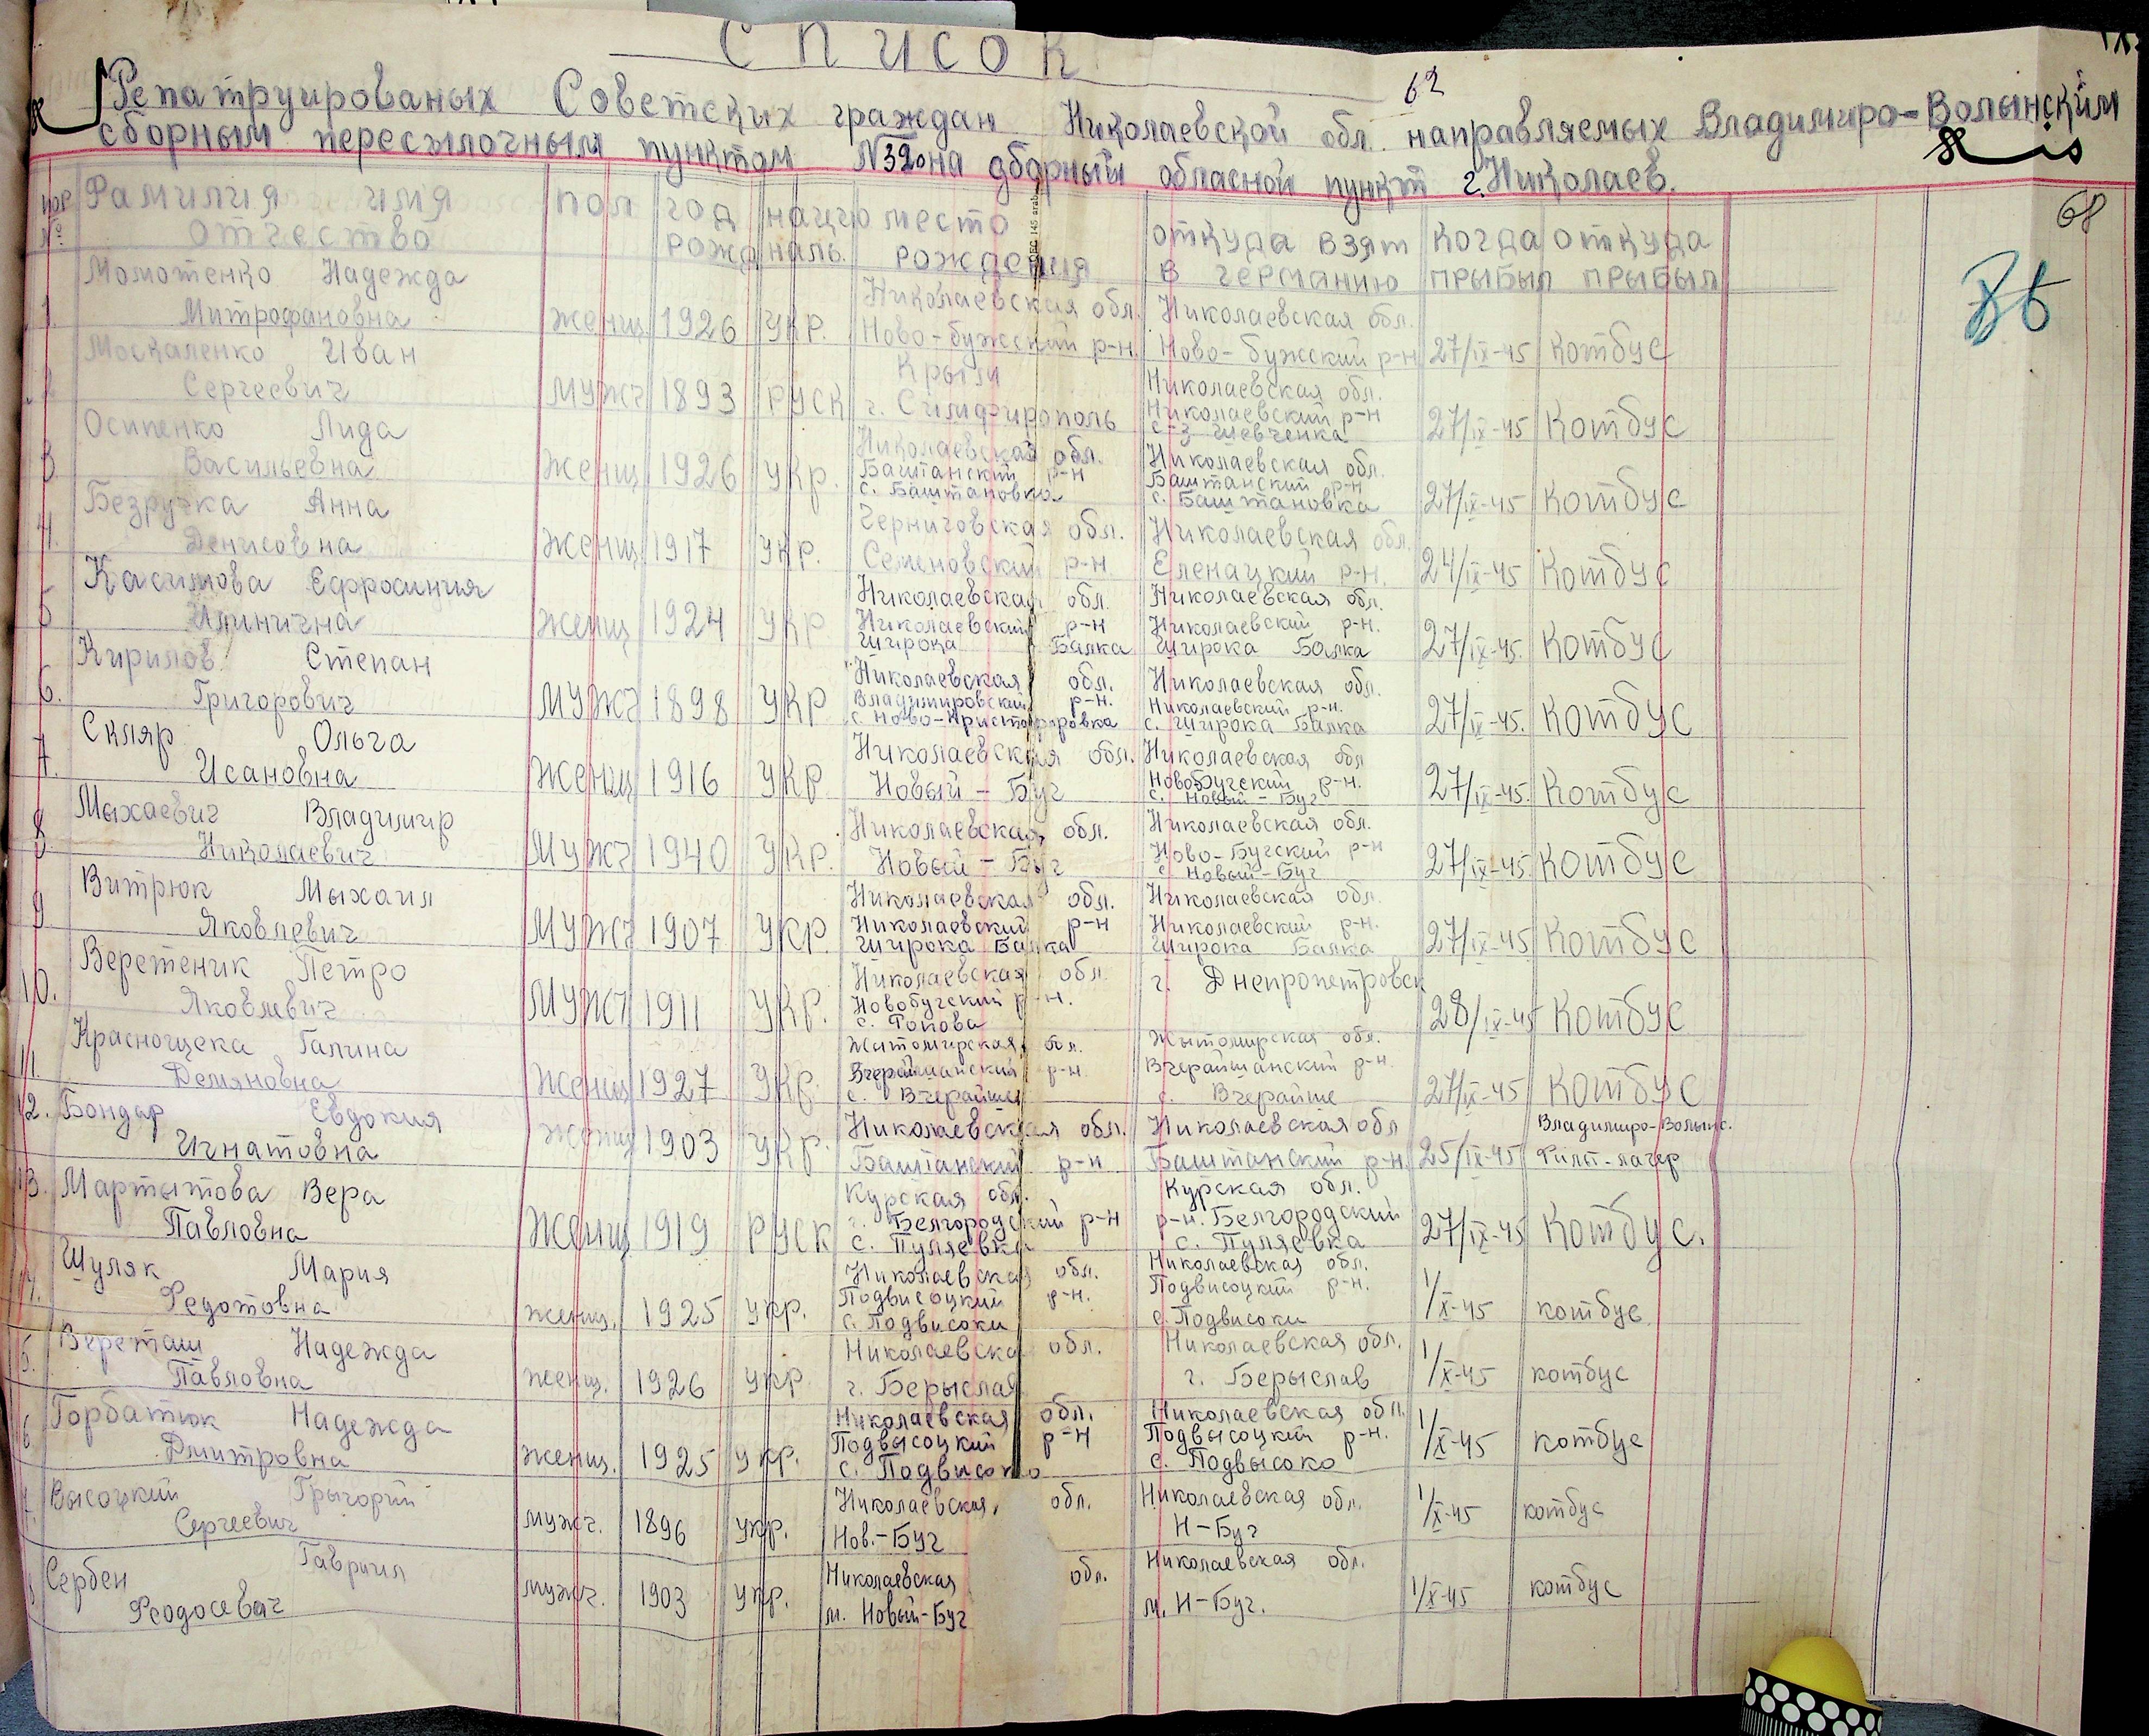 СПИСОК
62
Репатруированых Советских граждан Николаевской обл. направляемых Владимиро-Волынским
сборным пересылочным пунктом N320 на сборный обласной пункт г. Николаев.
68
нор № Фамилия имя отчество пол год рожд нацио наль. место рождения откуда взят в германию когда прыбыл откуда прыбыл
Момотенко Надежда Николаевская обл. Николаевская обл.
1. Митрофановна женщ 1926 укр. Ново-бужский р-н. Ново-бужский р-н 27/IX-45 Котбус
Москаленко Иван Крым Николаевская обл.
2 Сергеевич мужч 1893 руск г. Симфирополь Николаевский р-н с-з Шевченка 27/IX-45 Котбус
Осипенко Лида Николаевская обл. Николаевская обл.
3. Васильевна женщ 1926 укр. Баштанский р-н Баштанский р-н
с. Баштановка с. Баштановка 27/IX-45 Котбус
Безручка Анна Черниговская обл. Николаевская обл.
4. Денисовна женщ 1917 укр. Семеновский р-н Еленацкий р-н. 24/IX-45 Котбус
Касимова Ефросиния Николаевская обл. Николаевская обл.
5 Илинична женщ 1924 укр Николаевский р-н Николаевский р-н.
Широка Балка Широка Балка 27/IX-45. Котбус
Кирилов Степан Николаевская обл. Николаевская обл.
6. Григорович мужч 1898 укр Владимировский р-н. Николаевский р-н.
с. Ново-Христофоровка с. Широка Балка 27/IX-45. Котбус
Скляр Ольга Николаевская обл. Николаевская обл
7. Исановна женщ 1916 укр Новый-Буг Новобугский р-н.
с. Новый-Буг 27/IX-45. Котбус
Мыхаевич Владимир Николаевская обл. Николаевская обл.
8 Николаевич мужч 1940 укр. Новый-Буг Ново-Бугский р-н
с Новый-Буг 27/IX-45. Котбус
Витрюк Мыхаил Николаевская обл. Николаевская обл.
9 Яковлевич мужч 1907 укр. Николаевский р-н Николаевский р-н.
Широка Балка Широка Балка 27/IX-45 Котбус
Веретеник Петро Николаевская обл. г. Днепропетровск
10. Яковлевич мужч 1911 укр. Новобугский р-н.
28/IX-45 Котбус
Красногцека Галина Жытомирская обл. Жытомирская обл.
11. Демяновна женщ 1927 укр. Вчерайшанский р-н. Вчерайшанский р-н.
с. Вчерайше с. Вчерайше 27/IX-45 Котбус
12. Бондар Евдокия Николаевская обл. Николаевская обл Владимиро-Волынс.
Игнатовна женщ 1903 укр. Баштанский р-н Баштанский р-н 25/IX-45 Филт-лагер
13. Мартытова Вера Курская обл. Курская обл.
Павловна женщ 1919 руск г. Белгородский р-н р-н. Белгородский
с. Пуляевка с. Пуляевка 27/IX-45 Котбус.
Шуляк Мария Николаевская обл. Николаевская обл.
14. Федотовна женщ. 1925 укр. Подвисоцкий р-н. Подвисоцкий р-н.
с. Подвисоки с. Подвисоки 1/X-45 котбус
Вереташ Надежда Николаевска обл. Николаевская обл.
5. Павловна женщ. 1926 укр г. Берыслав г. Берыслав 1/X-45 котбус
Горбатюк Надежда Николаевская обл. Николаевская обл.
6 Дмитровна женщ. 1925 укр. Подвысоцкий р-н Подвысоцкий р-н.
с. Подвисоко с. Подвысоко 1/X-45 котбус
Высоцкий Грыгорий Николаевская обл. Николаевская обл.
Сергеевич мужч. 1896 укр. Нов.-Буг Н-Буг 1/X-45 котбус
Сербен Гавриил Николаевская обл. Николаевская обл.
Феодосевич мужч. 1903 укр. м. Новый-Буг м. Н-Буг. 1/X-45 котбус